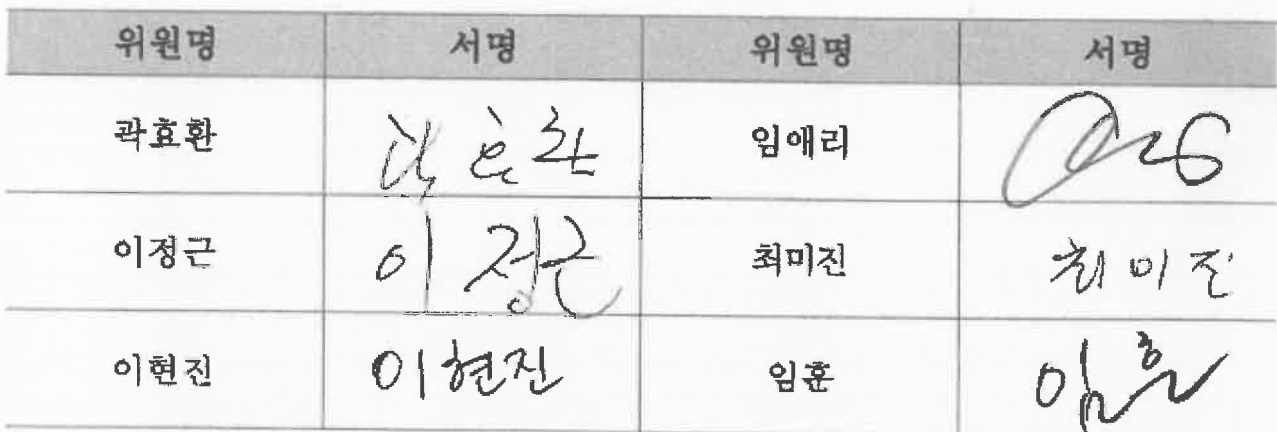 위원명 서명 위원명 서명
곽효환 곽효환 임애리
이정근 이정근 최미진 최미진
이현진 이현진 임훈 임훈